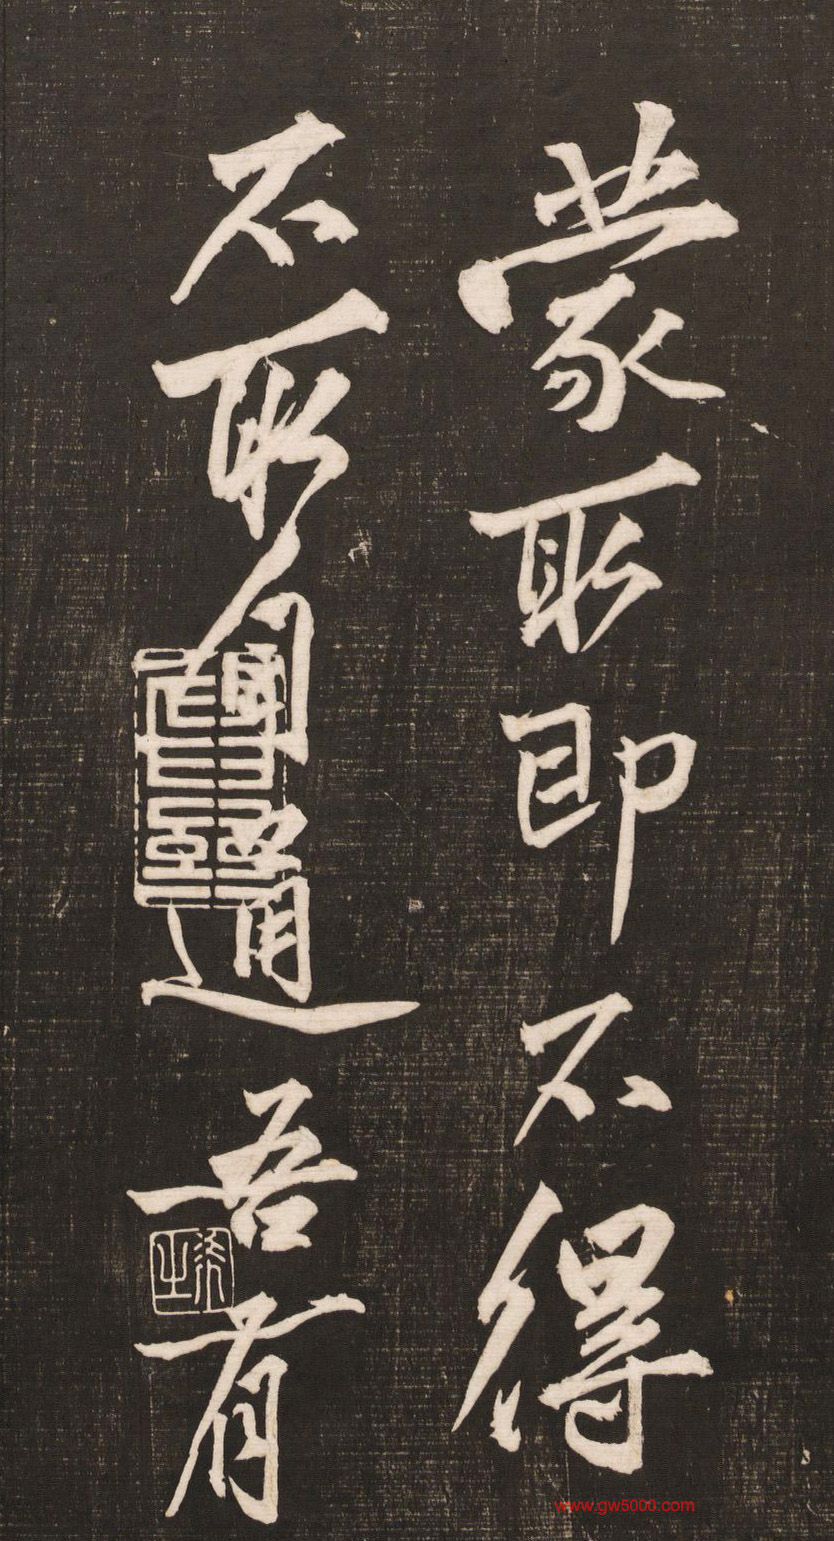 蒙取即不得
不取通吾有
www.gw5000.com